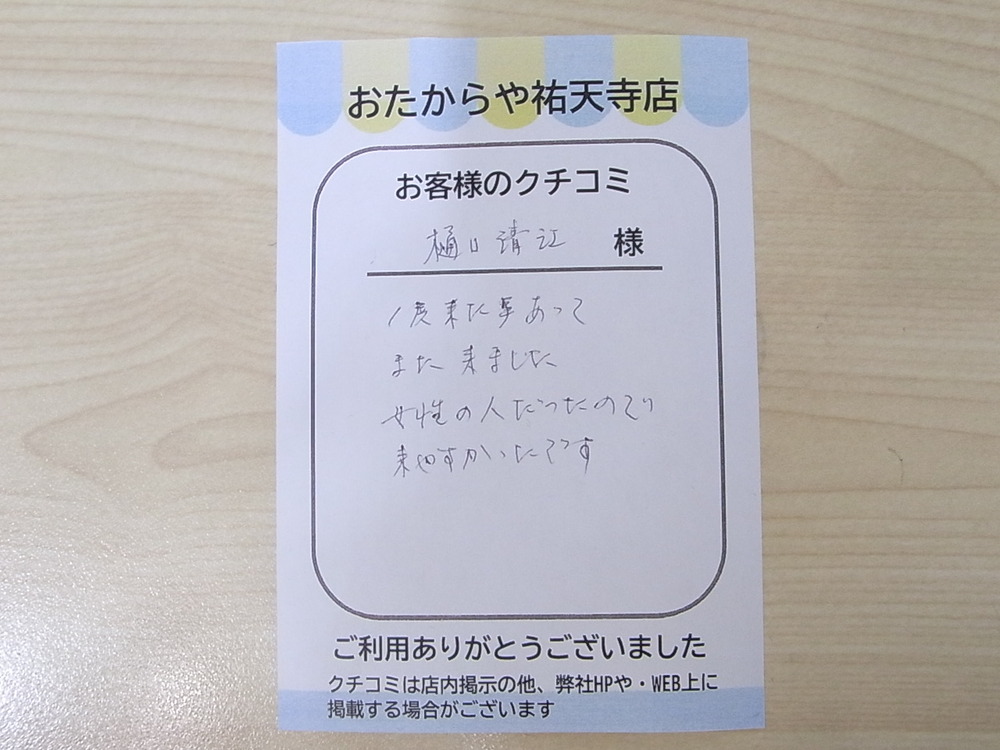 おたからや祐天寺店
お客様のクチコミ
樋口清江 様
1度来た事あって
また来ました
女性の人だったので
来やすかったです
ご利用ありがとうございました
クチコミは店内掲示の他、弊社HPや・WEB上に
掲載する場合がございます